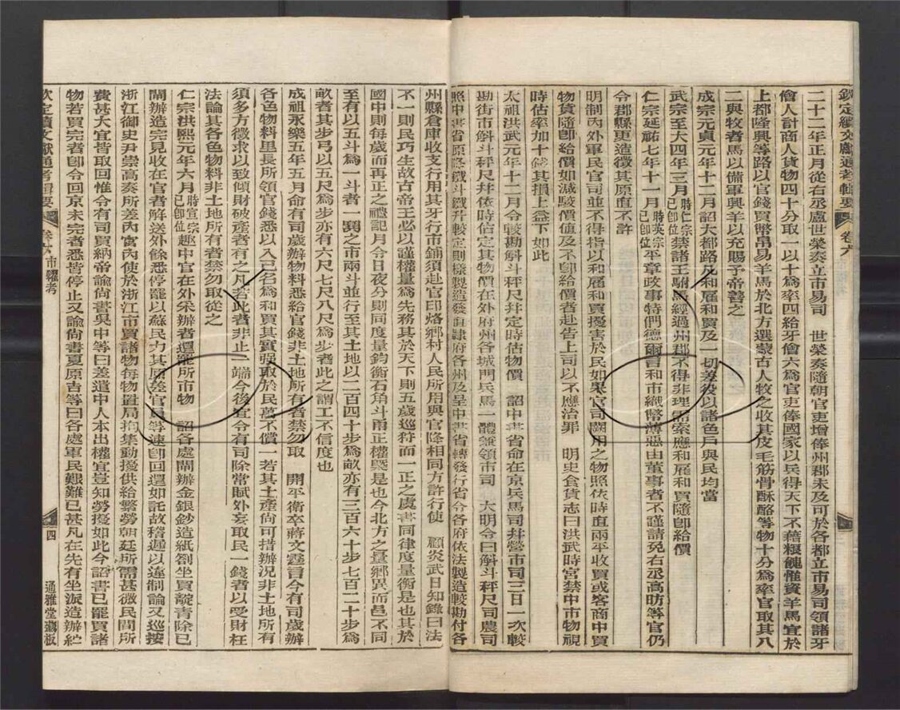 欽定續文獻通考輯要 卷六
二十二年正月從右丞盧世榮奏立市易司 世榮奏隨朝官吏增俸州郡未及可於各都立市易司領諸牙
儈人計商人貨物四十分取一以十為率四給牙儈六為官吏俸國家以兵得天下不藉糧餽惟資羊馬宜於
上都隆興等路以官錢買幣帛易羊馬於北方選蒙古人牧之收其皮毛筋骨酥酪等物十分為率官取其八
二與牧者馬以備軍興羊以充賜予帝善之
成宗元貞元年十二月詔大都路凡和雇和買及一切差役以諸色戶與民均當
武宗至大四年三月時仁宗已即位禁諸王駙馬經過州郡不得非理需索應和雇和買隨即給價
仁宗延祐七年十一月時英宗已即位平章政事特們德爾言和市織幣薄惡由董事者不謹請免右丞高昉等官仍
令郡縣更造徵其原直不許
明制內外軍民官司並不得指以和雇和買擾害於民如果官司闕用之物照依時直兩平收買或客商中買
物貨隨即給價如減駮價值及不即給價者赴告上司以不應治罪 明史食貨志曰洪武時宮禁中市物視
時估率加十錢其損上益下如此
太祖洪武元年十二月令較勘斛斗秤尺并定時估物價 詔中書省命在京兵馬司并管市司三日一次較
勘街市斛斗秤尺并依時估定其物價在外府州各城門兵馬一體兼領市司 大明令曰斛斗秤尺司農司
照中書省原降鐵斗鐵升較定則樣製造發直隸府各州及呈中書省轉發行省令各府依法製造較勘付各
州縣倉庫收支行用其牙行市鋪須赴官印烙鄉村人民所用與官降相同方許行使 顧炎武日知錄曰法
不一則民巧生故古帝王必以謹權量為先務其於天下則五歲巡狩而一正之虞書同律度量衡是也其於
國中則每歲而再正之禮記月令日夜分則同度量鈞衡石角斗甬正權槩是也今北方之量鄉異而邑不同
至有以五斗為一斗者一鬨之市兩斗並行至其土地以二百四十步為畝亦有三百六十步七百二十步為
畝者其步弓以五尺為步亦有六尺七尺八尺為步者此之謂工不信度也
成祖永樂五年五月命有司歲辦物料悉給官錢非土地所有者禁勿取 開平衛卒蔣文霆言今有司歲辦
各色物料里長所領官錢悉以入己名為和買其實強取於民萬不償一若其土產尚可措辦況非土地所有
須多方徵求以致傾財破產者有之凡若此者非止一端今後宜令有司除常賦外妄取民一錢者以受財枉
法論其各色物料非土地所有者禁勿取從之
仁宗洪熙元年六月時宣宗已即位趣中官在外采辦者還罷所市物 詔各處閘辦金銀鈔造紙劄坐買靛青除已
閘辦造完見收在官者解送外餘悉停罷以蘇民力其原差官員等速即回還如託故稽遲以違制論又巡按
浙江御史尹崇高奏所差內官內使於浙江市買諸物每物置局拘集動擾供給繁勞朝廷所需甚微民間所
費甚大宜皆取回惟令有司買納帝諭尚書吳中等曰差遣中人本出權宜豈知勞擾如此今詔書已罷買諸
物若買完者即令回京未完者悉皆停止又諭尚書夏原吉等曰各處軍民艱難已甚凡在先有坐派造辦紵
欽定續文獻通考輯要 卷六 市糴考 四 通雅堂鐫板